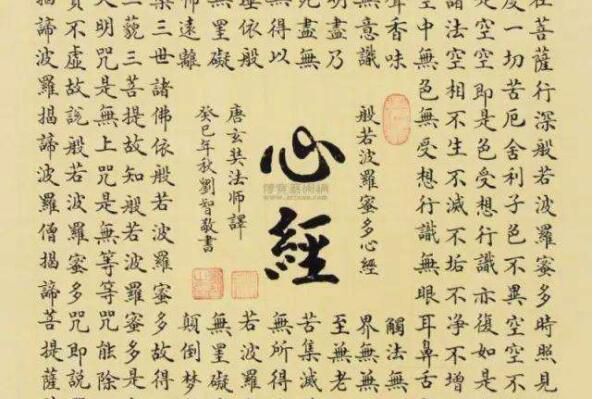 在菩薩行深般若波羅蜜多時照見
度一切苦厄舍利子色不異空空不
是空空即是色受想行識亦復如是
諸法空相不生不滅不垢不淨不增
空中無色無受想行識無眼耳鼻舌
香味
觸法無
無意識
界無無
明盡乃
至無老
死盡無
苦集滅
無得以
無所得
埵依般
若波羅
無罣礙
無罣礙
怖遠離
顛倒夢
般若波羅蜜多心經
心經
唐玄奘法師譯
癸巳年秋劉智敬書
槃三世諸佛依般若波羅蜜多故得
三藐三菩提故知般若波羅蜜多是
大明咒是無上咒是無等等咒能除
實不虛故說般若波羅蜜多咒即說
揭諦波羅揭諦波羅僧揭諦菩提薩